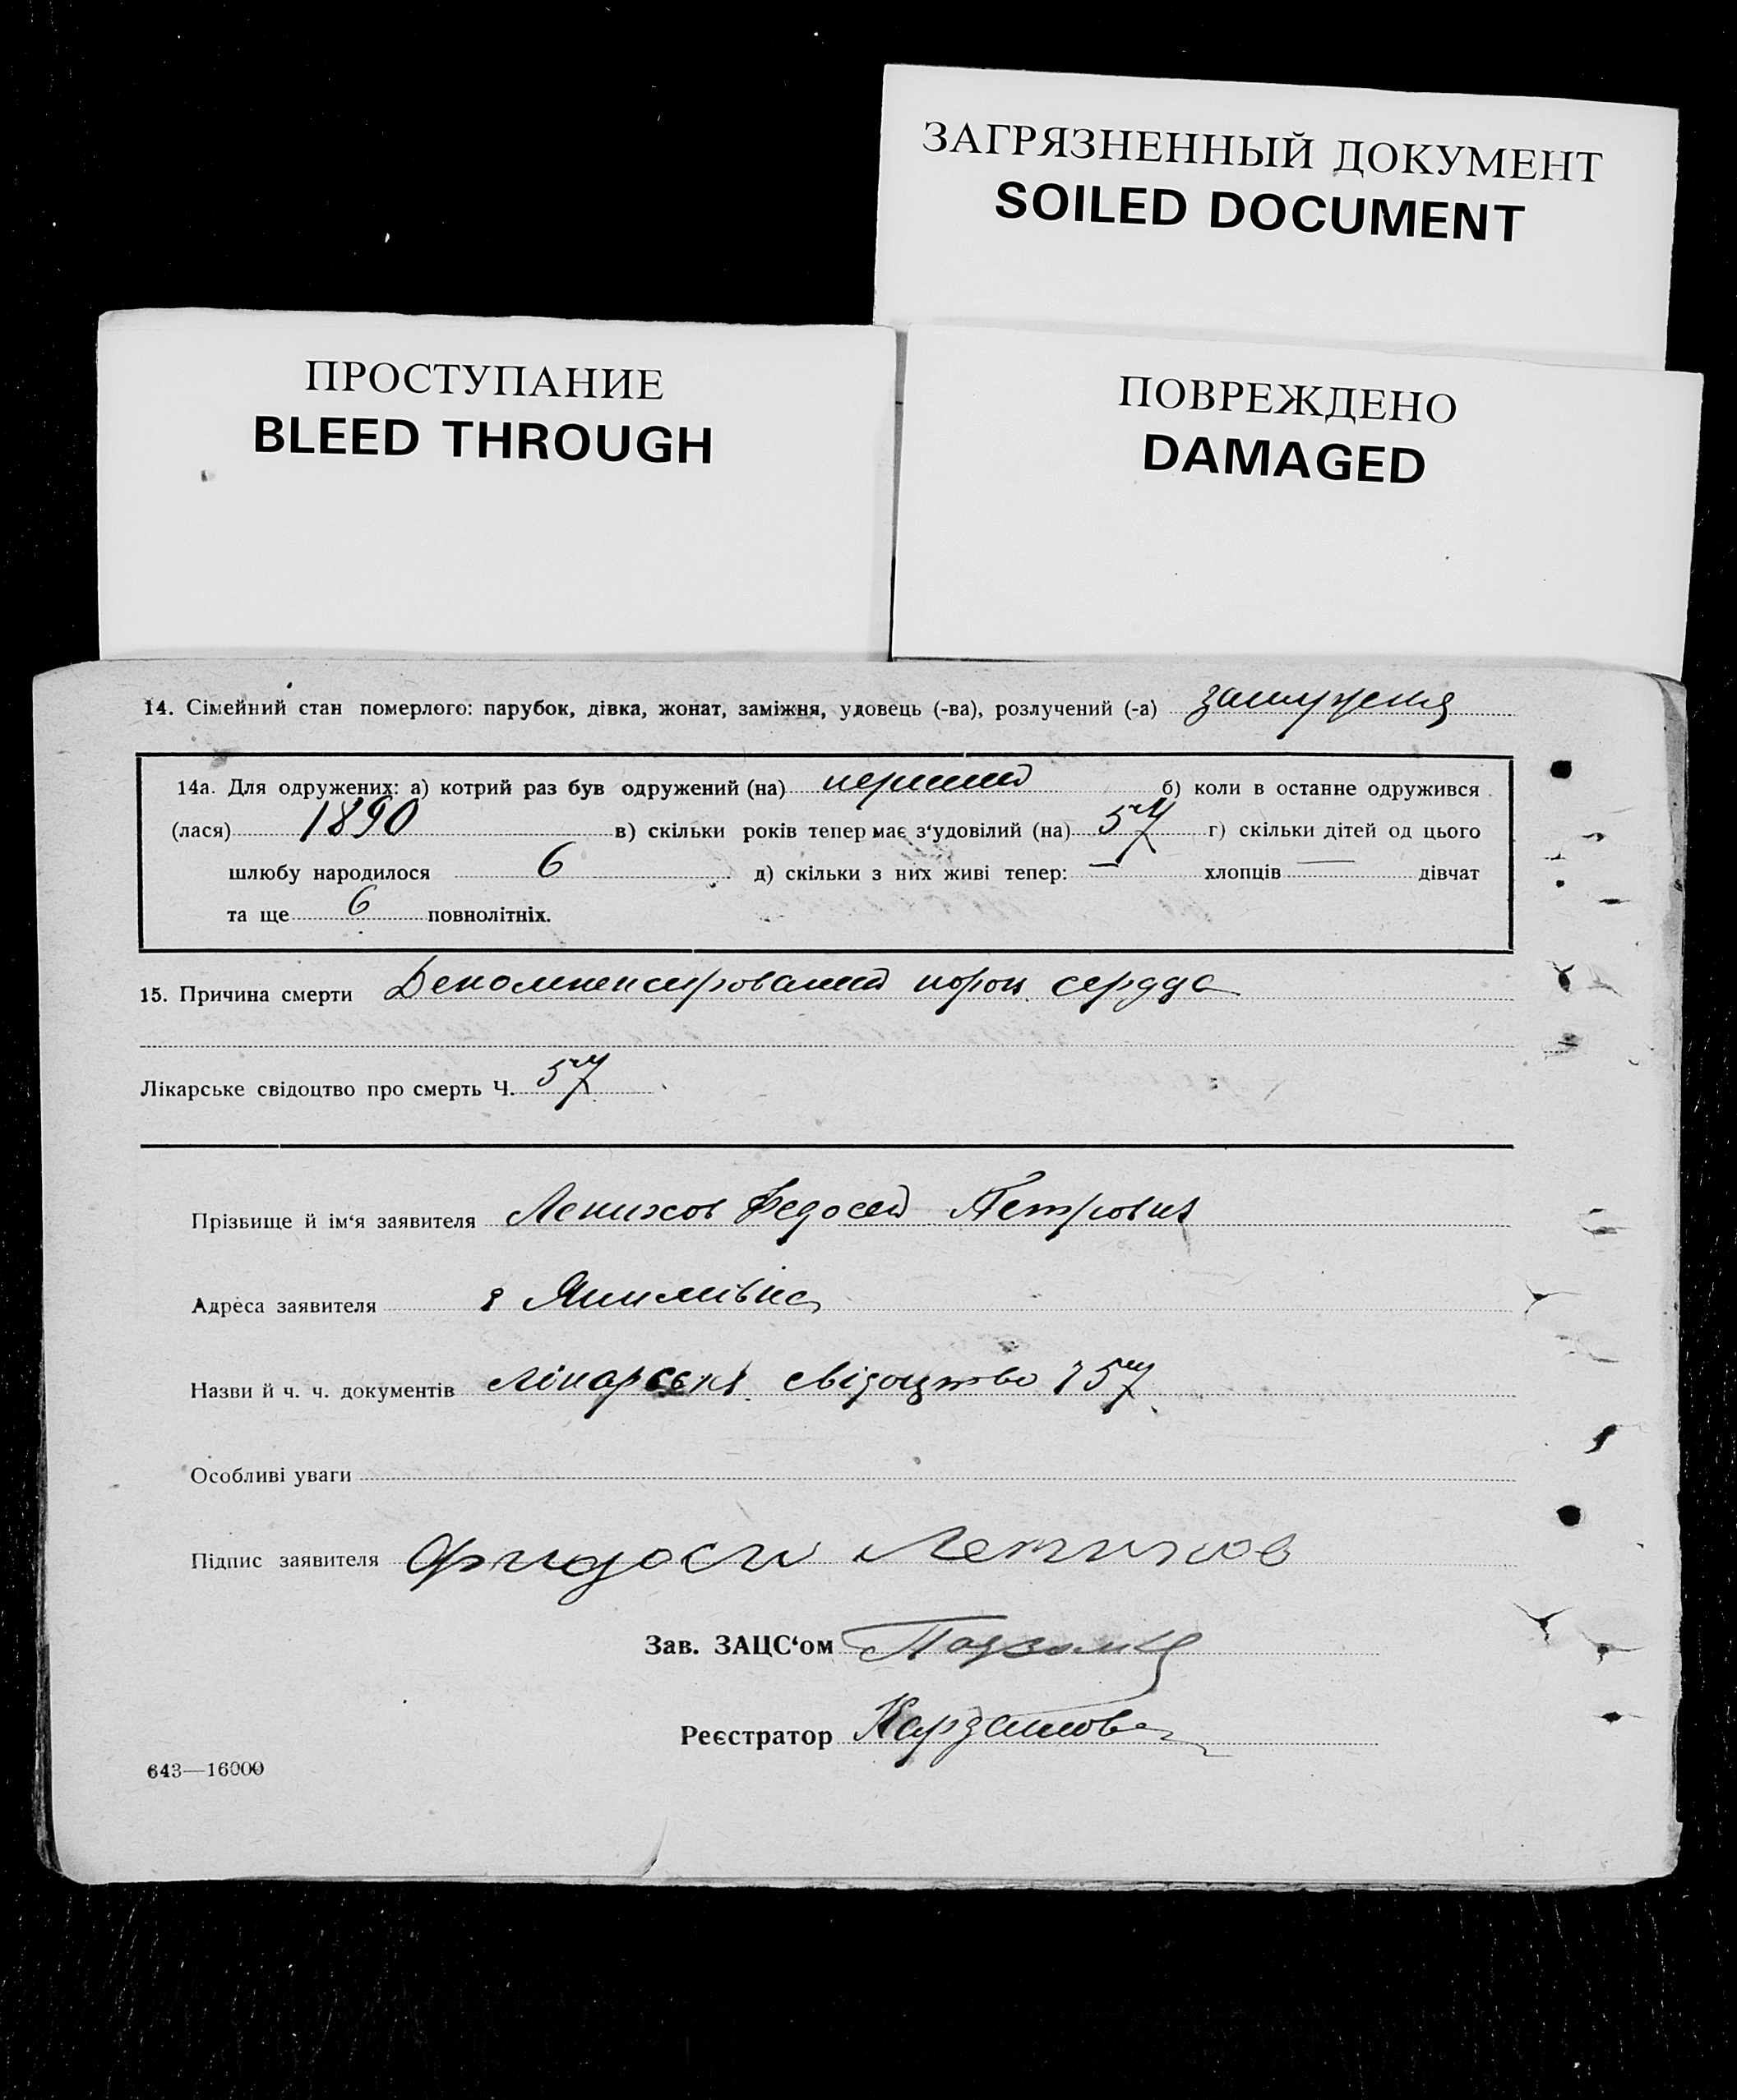 ЗАГРЯЗНЕННЫЙ ДОКУМЕНТ
SOILED DOCUMENT
ПРОСТУПАНИЕ
BLEED THROUGH
ПОВРЕЖДЕНО
DAMAGED
14. Сімейний стан померлого: парубок, дівка, жонат, заміжня, удовець (-ва), розлучений (-а) замужня
14а. Для одружених: а) котрий раз був одружений (на) перший б) коли в останнє одружився
(лася) 1890 в) скільки років тепер має з‘удовілий (на) 57 г) скільки дітей од цього
шлюбу народилося 6 д) скільки з них живі тепер: — хлопців — дівчат
та ще 6 повнолітніх.
15. Причина смерти Декомпенсирований порок сердца
Лікарське свідоцтво про смерть Ч. 57
Прізвище й ім‘я заявителя Федосей Петрович
Адреса заявителя Якимівка
Назви й ч. ч. документів лікарське свідоцтво 57
Особливі уваги
Підпис заявителя
Зав. ЗАЦС‘ом
Реєстратор
643—16000